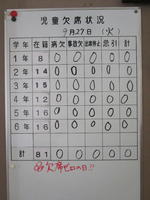 児童欠席状況
9月27日 (火)
学年 在籍 病欠 事故欠 出席停止 忌引 計
1年 8 0 0 0 0 0
2年 14 0 0 0 0 0
3年 15 0 0 0 0 0
4年 12 0 0 0 0 0
5年 16 0 0 0 0 0
6年 16 0 0 0 0 0
計 81 0 0 0 0 0
欠席ゼロの日!!